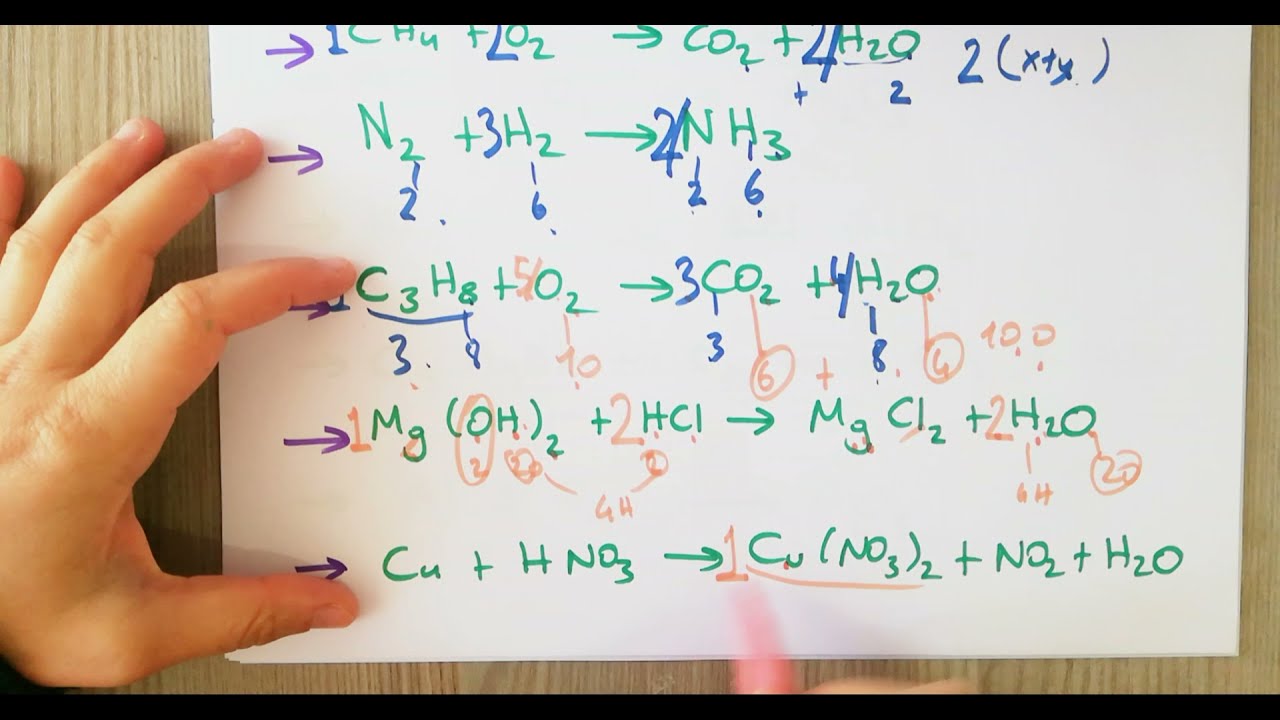 → 1CH4 + 2O2 → CO2 + 2H2O 2(x+y)
+ 2
→ N2 + 3H2 → 2NH3
2 6 2 6
→ 1C3H8 + 5O2 → 3CO2 + 4H2O
3 8 10 3 6 + 8 4 10 O
→ 1Mg(OH)2 + 2HCl → MgCl2 + 2H2O
2 2 4H 2 4H 2O
→ Cu + HNO3 → 1Cu(NO3)2 + NO2 + H2O